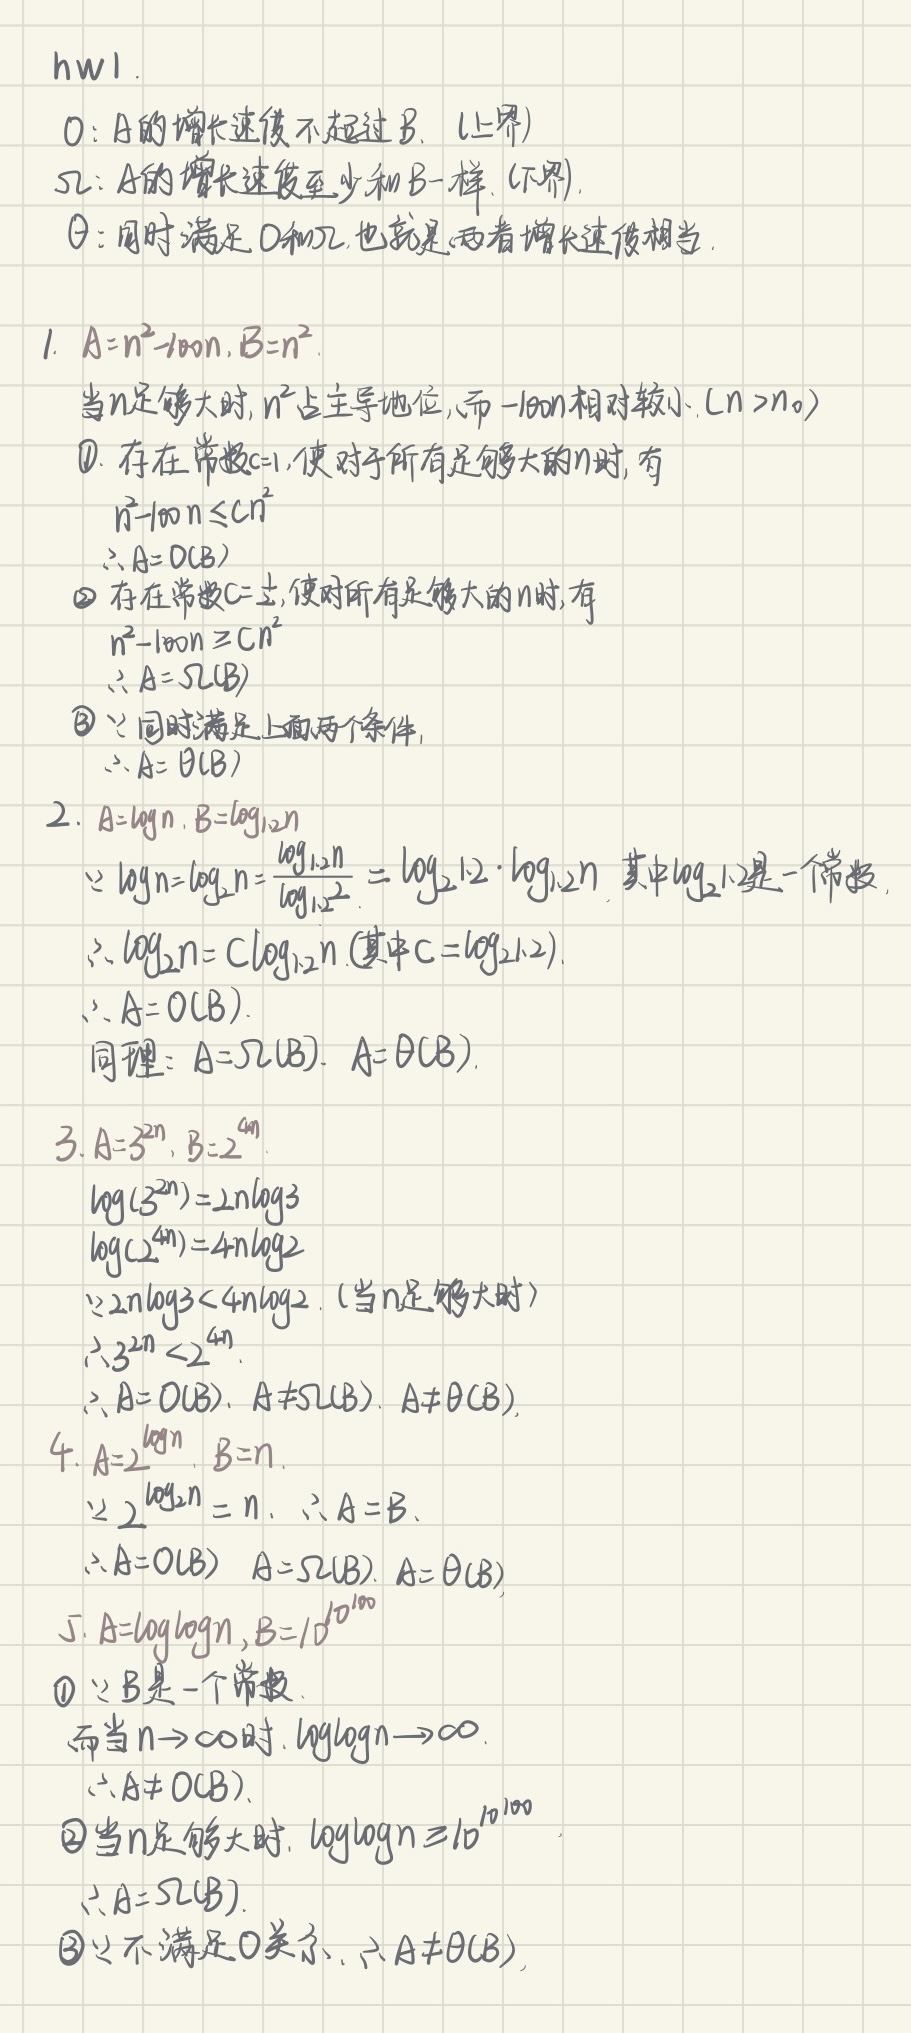 hw1.
O: A的增长速度不超过B. (上界)
Ω: A的增长速度至少和B一样. (下界).
θ: 同时满足O和Ω,也就是两者增长速度相当.
1. A=n²-100n, B=n².
当n足够大时, n²占主导地位,而-100n相对较小. (n>n₀)
①. 存在常数c=1,使对于所有足够大的n时,有
n²-100n≤Cn²
∴A=O(B)
② 存在常数C=½,使对所有足够大的n时,有
n²-100n≥Cn²
∴A=Ω(B)
③ ∵同时满足上面两个条件,
∴A=θ(B)
2. A=logn, B=log₁.₂n
∵ logn=log₂n= log₁.₂n/log₁.₂2 = log₂1.2·log₁.₂n, 其中log₂1.2是一个常数,
∴log₂n=Clog₁.₂n.(其中C=log₂1.2).
∴A=O(B).
同理: A=Ω(B). A=θ(B).
3. A=3²ⁿ, B=2⁴ⁿ.
log(3²ⁿ)=2nlog3
log(2⁴ⁿ)=4nlog2
∵2nlog3<4nlog2. (当n足够大时)
∴3²ⁿ<2⁴ⁿ.
∴A=O(B). A≠Ω(B). A≠θ(B).
4. A=2^logn. B=n.
∵ 2^log₂n = n. ∴A=B.
∴A=O(B) A=Ω(B). A=θ(B).
5. A=loglogn, B=10^10^100
① ∵B是一个常数.
而当n→∞时. loglogn→∞.
∴A≠O(B).
②当n足够大时. loglogn≥10^10^100.
∴A=Ω(B).
③∵不满足O关系. ∴A≠θ(B).